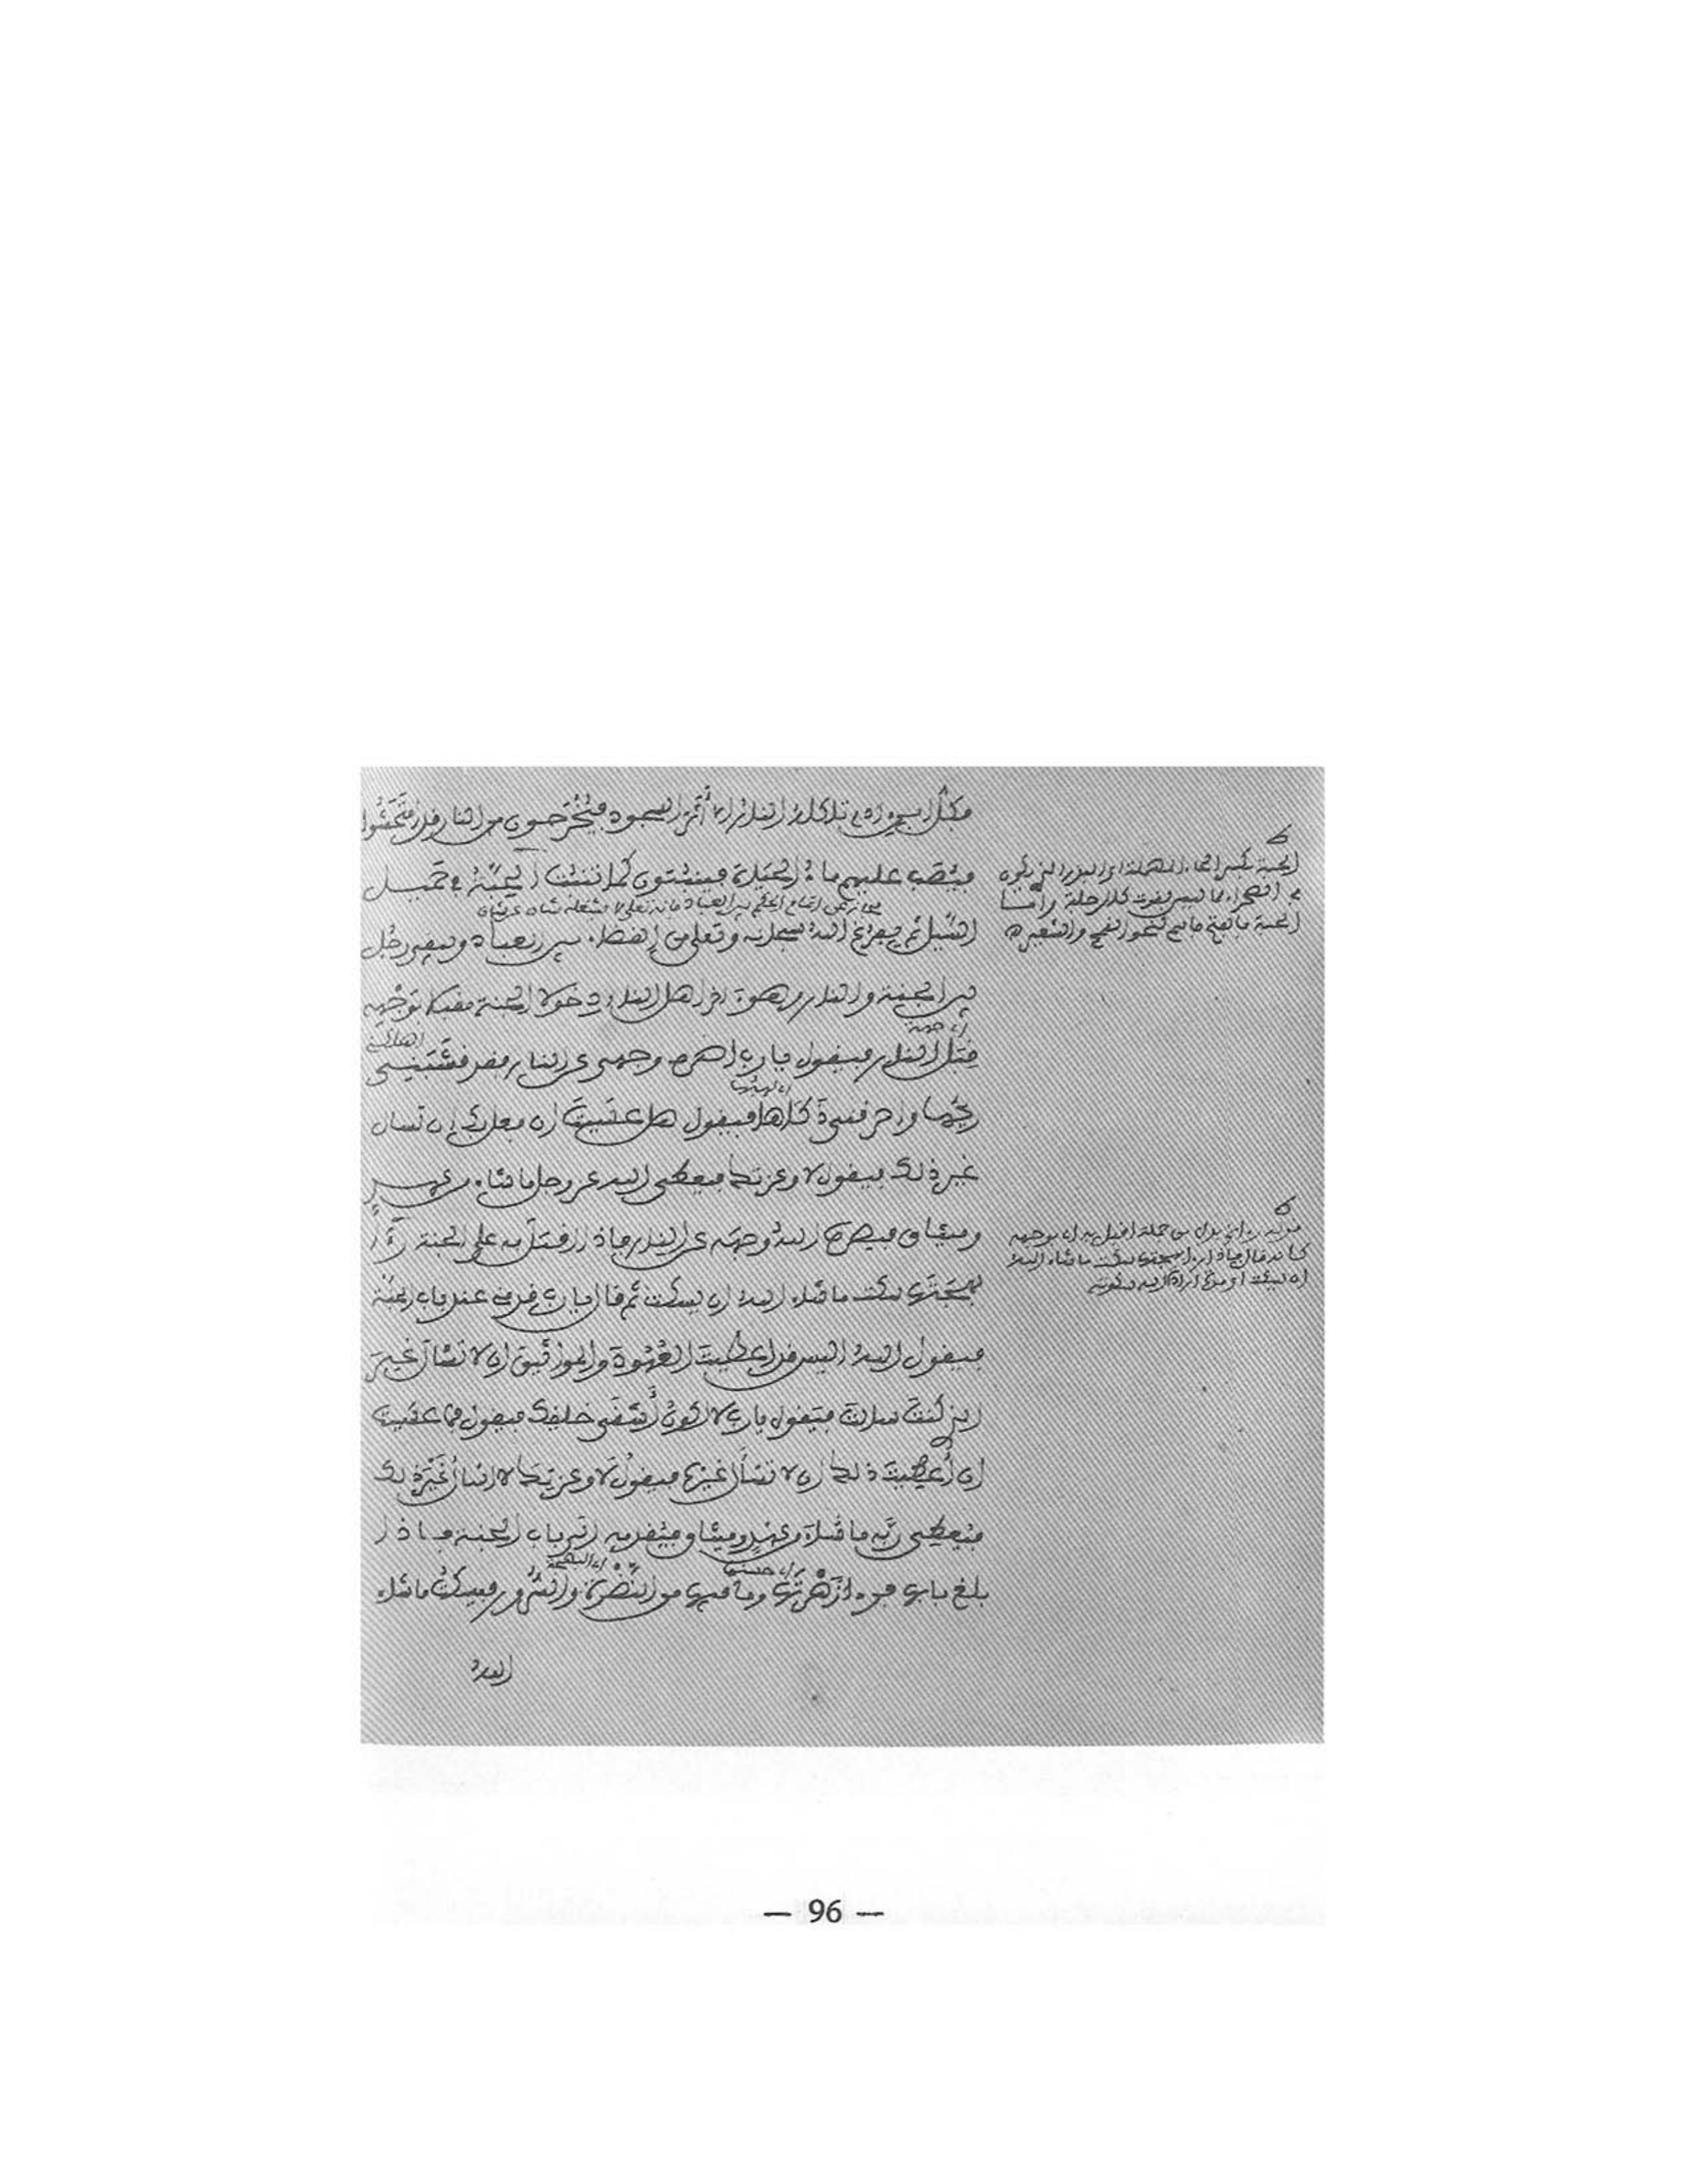 فكل ابن ءادم تاكله النار الا أثر السجود فيخرجون من النار قد امتحشوا
فيصب عليهم ماء الحياة فينبتون كما تنبت الحبة في حميل
السيل ثم يفرغ الله سبحانه وتعلى من القضاء بين العباد ويبقى رجل
بين الجنة والنار وهو ءاخر اهل النار دخولا الجنة مقبلا بوجهه
اي جهة
قبل النار فيقول يا رب اصرف وجهي عن النار فقد قشبني
ريحها واحرقني ذكاها فيقول هل عسيت ان فعل ذلك ان تسال
غير ذلك فيقول لا وعزتك فيعطي الله عز وجل ما شاء من عهد
وميثاق فيصرف الله وجهه عن النار فاذا اقبل به على الجنة رأا
بهجتها سكت ما شاء الله ان يسكت ثم قال يا رب قدمني عند باب الجنة
فيقول الله اليس قد اعطيت العهود والمواثيق ان لا تسأل غير
الذي كنت سالت فيقول يا رب لا اكون أشقى خلقك فيقول فما عسيت
ان أعطيت ذلك ان لا تسأل غيره فيقول لا وعزتك لا اسال غير ذلك
فيعطي ربه ما شاء من عهد وميثاق فيقدمه الى باب الجنة فاذا
اي حسنها اي البهجة
بلغ بابها فرءا زهرتها وما فيها من النضرة والسرور فيسكت ما شاء
الله
الحبة بكسر الحاء المهملة اي البزور الذي تكون
في الصحراء مما ليس بقوت كالرجلة وأما
الحبة بالفتح فاسم لنحو القمح والشعير
بدل من جملة اقبل به اي بوجهه
كانه قال فاذا رءا بهجتها سكت ما شاء الله
ان يسكت
— 96 —